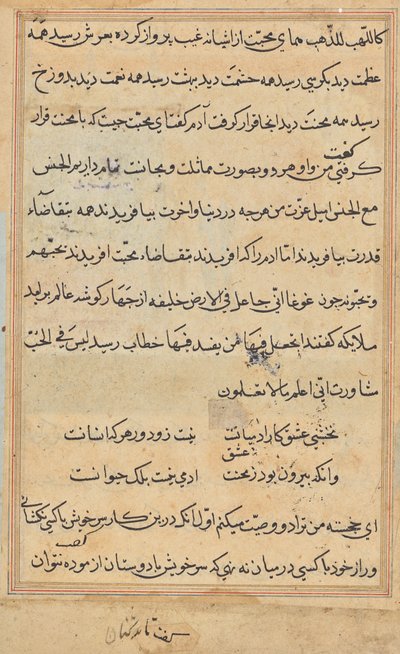 کاللهب للذهب همای محبت از اشیانه غیب پرواز کرده بعرش رسید همه
عظمت دید بکرسی رسید همه حشمت دید ببهشت رسید همه نعمت دید بدوزخ
رسید همه محنت دید انجا قرار کرفت آدم کفت ای محبت چیست که با محنت قرار
کرفتی کفت من و او هر دو بصورت مماثلت و مجانست تمام داریم الجنس
مع الجنس امیل عزت من هرچه در دنیا و اخرت بیافریدند همه بتقاضاء
قدرت بیافریدند اما ادم را که افریدند بتقاضاء محبت افریدند یحبهم
و یحبونه چون غوغا انی جاعل فی الارض خلیفه از چهار کوشه عالم برامد
ملایکه کفتند اتجعل فیها من یفسد فیها خطاب رسید لیس فی الحب
مشاورت انی اعلم ما لا تعلمون
نخشبی عشق کار ادمیانست نیست زو دور هر که انسانست
وانکه بیرون بود ز محنت عشق ادمی نیست بلک حیوانست
ای خجسته من ترا دو وصیت میکنم اول انک درین کار سر خویش با کسی نکشائی
و راز خود با کسی در میان ننهی که سر خویش با دوستان ازموده نتوان کفت
کفت تا